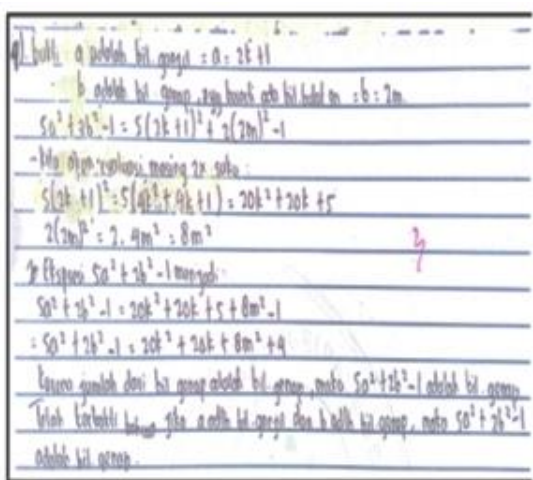 a) bukti a adalah bil ganjil : a = 2k+1
b adalah bil genap, bil bulat m : b = 2m
5a² + 2b² - 1 = 5(2k+1)² + 2(2m)² - 1
- kita akan evaluasi masing 2x suku :
5(2k+1)² = 5(4k² + 4k + 1) = 20k² + 20k + 5
2(2m)² = 2. 4m² = 8m²
3
Ekspresi 5a² + 2b² - 1 menjadi :
5a² + 2b² - 1 = 20k² + 20k + 5 + 8m² - 1
= 5a² + 2b² - 1 = 20k² + 20k + 8m² + 4
karena jumlah dari bil genap adalah bil genap, maka 5a² + 2b² - 1 adalah bil. genap
Telah terbukti bahwa jika a adlh bil ganjil dan b adlh bil genap, maka 5a² + 2b² - 1
adalah bil genap.